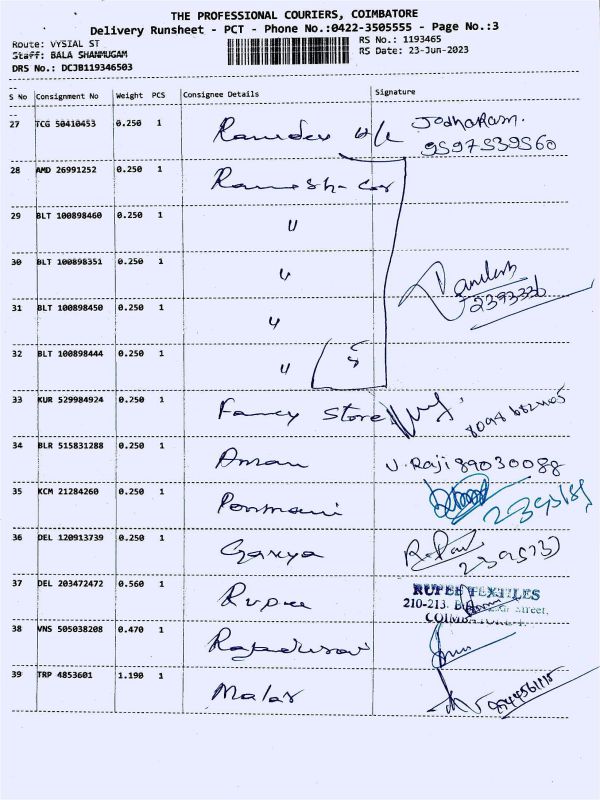 THE PROFESSIONAL COURIERS, COIMBATORE
Delivery Runsheet - PCT - Phone No.:0422-3505555 - Page No.:3
Route: VYSIAL ST
RS No.: 1193465
Staff: BALA SHANMUGAM
RS Date: 23-Jun-2023
DRS No.: DCJB119346503
S No Consignment No Weight PCS Consignee Details Signature
27 TCG 50410453 0.250 1 Ramdev Jodharam.
9597539560
28 AMD 26991252 0.250 1 Ramesh
29 BLT 100898460 0.250 1 "
30 BLT 100898351 0.250 1 "
31 BLT 100898450 0.250 1 "
32 BLT 100898444 0.250 1 " 5
33 KUR 529984924 0.250 1 Fancy Store
34 BLR 515831288 0.250 1 Aman V. Raji 89030088
35 KCM 21284260 0.250 1 Ponmani
36 DEL 120913739 0.250 1 Gaxya
37 DEL 203472472 0.560 1 Rupee RUPEE TEXTILES
210-213, Street,
COIMBATORE-1.
38 VNS 505038208 0.470 1
39 TRP 4853601 1.190 1 Malar